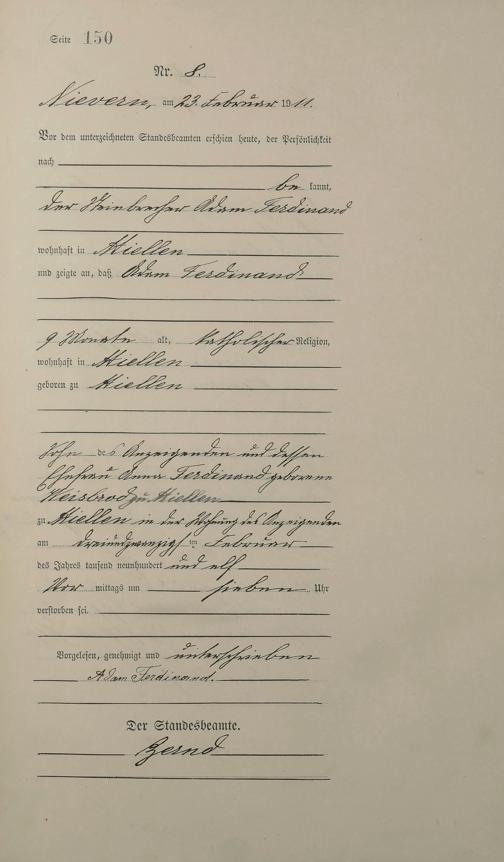 Seite 150
Nr. 8.
Nievern, am 23. Februar 1911.
Vor dem unterzeichneten Standesbeamten erschien heute, der Persönlichkeit
nach
be kannt,
der Steinbrecher Adam Ferdinand
wohnhaft in Miellen
und zeigte an, daß Adam Ferdinand
9 Monate alt, katholischer Religion,
wohnhaft in Miellen
geboren zu Miellen
Sohn des Anzeigenden und dessen
Ehefrau Anna Ferdinand geborene
Weisbrod zu Miellen
zu Miellen in der Wohnung des Anzeigenden
am dreiundzwanzigsten Februar
des Jahres tausend neunhundert und elf
Vor mittags um sieben Uhr
verstorben sei.
Vorgelesen, genehmigt und unterschrieben
Adam Ferdinand.
Der Standesbeamte.
Gernd